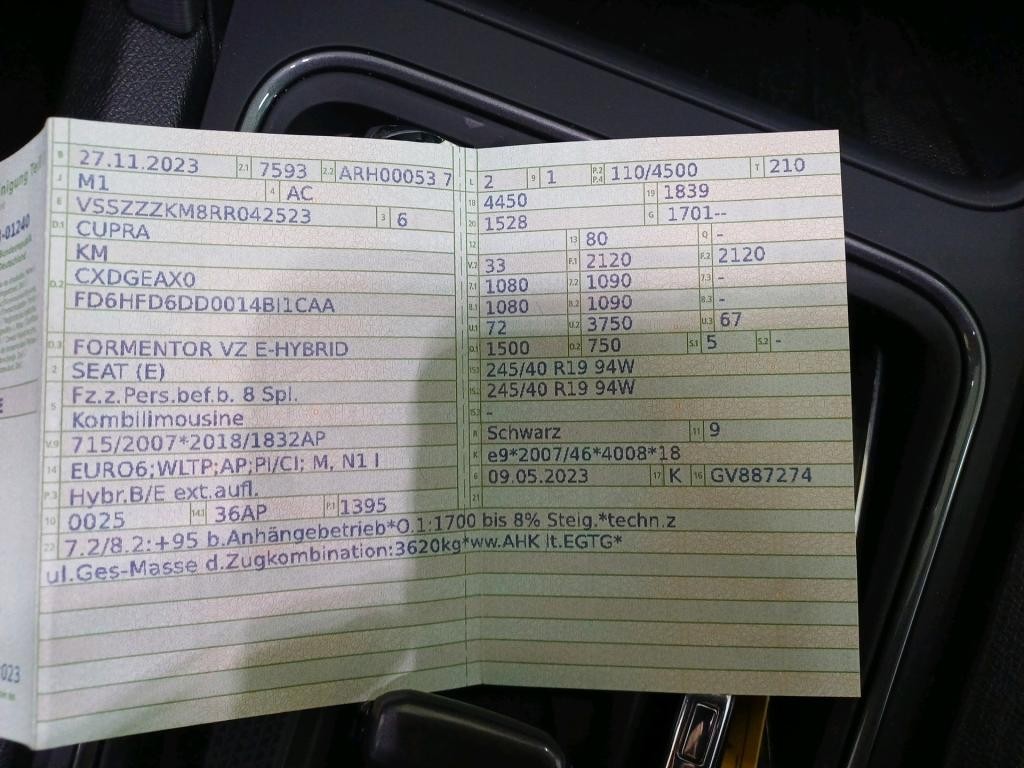 B 27.11.2023 2.1 7593 2.2 ARH00053 7
J M1 4 AC
E VSSZZZKM8RR042523 3 6
D.1 CUPRA
KM
D.2 CXDGEAX0
FD6HFD6DD0014BI1CAA
D.3 FORMENTOR VZ E-HYBRID
2 SEAT (E)
5 Fz.z.Pers.bef.b. 8 Spl.
Kombilimousine
V.9 715/2007*2018/1832AP
14 EURO6;WLTP;AP;PI/CI; M, N1 I
P.3 Hybr.B/E ext.aufl.
10 0025 14.1 36AP P.1 1395
L 2 9 1 P.2 P.4 110/4500 T 210
18 4450 19 1839
20 1528 G 1701--
12 13 80 Q -
V.7 33 F.1 2120 F.2 2120
7.1 1080 7.2 1090 7.3 -
8.1 1080 8.2 1090 8.3 -
U.1 72 U.2 3750 U.3 67
O.1 1500 O.2 750 S.1 5 S.2 -
15.1 245/40 R19 94W
15.2 245/40 R19 94W
15.3 -
R Schwarz 11 9
K e9*2007/46*4008*18
6 09.05.2023 17 K 16 GV887274
21
22 7.2/8.2:+95 b.Anhängebetrieb*O.1:1700 bis 8% Steig.*techn.z
ul.Ges-Masse d.Zugkombination:3620kg*ww.AHK lt.EGTG*
-01240
023